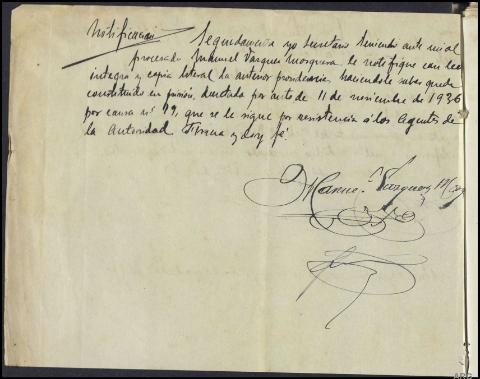 Notificación Seguidamente yo Secretario teniendo ante mi al
procesado Manuel Vazquez Mosquera le notifique con lectura
integra y copia literal la anterior providencia, haciendole saber queda
constituido en prisión, decretada por auto de 11 de noviembre de 1936
por causa nº 79, que se le sigue por resistencia á los Agentes de
la Autoridad firma y doy fé
Manuel Vazquez